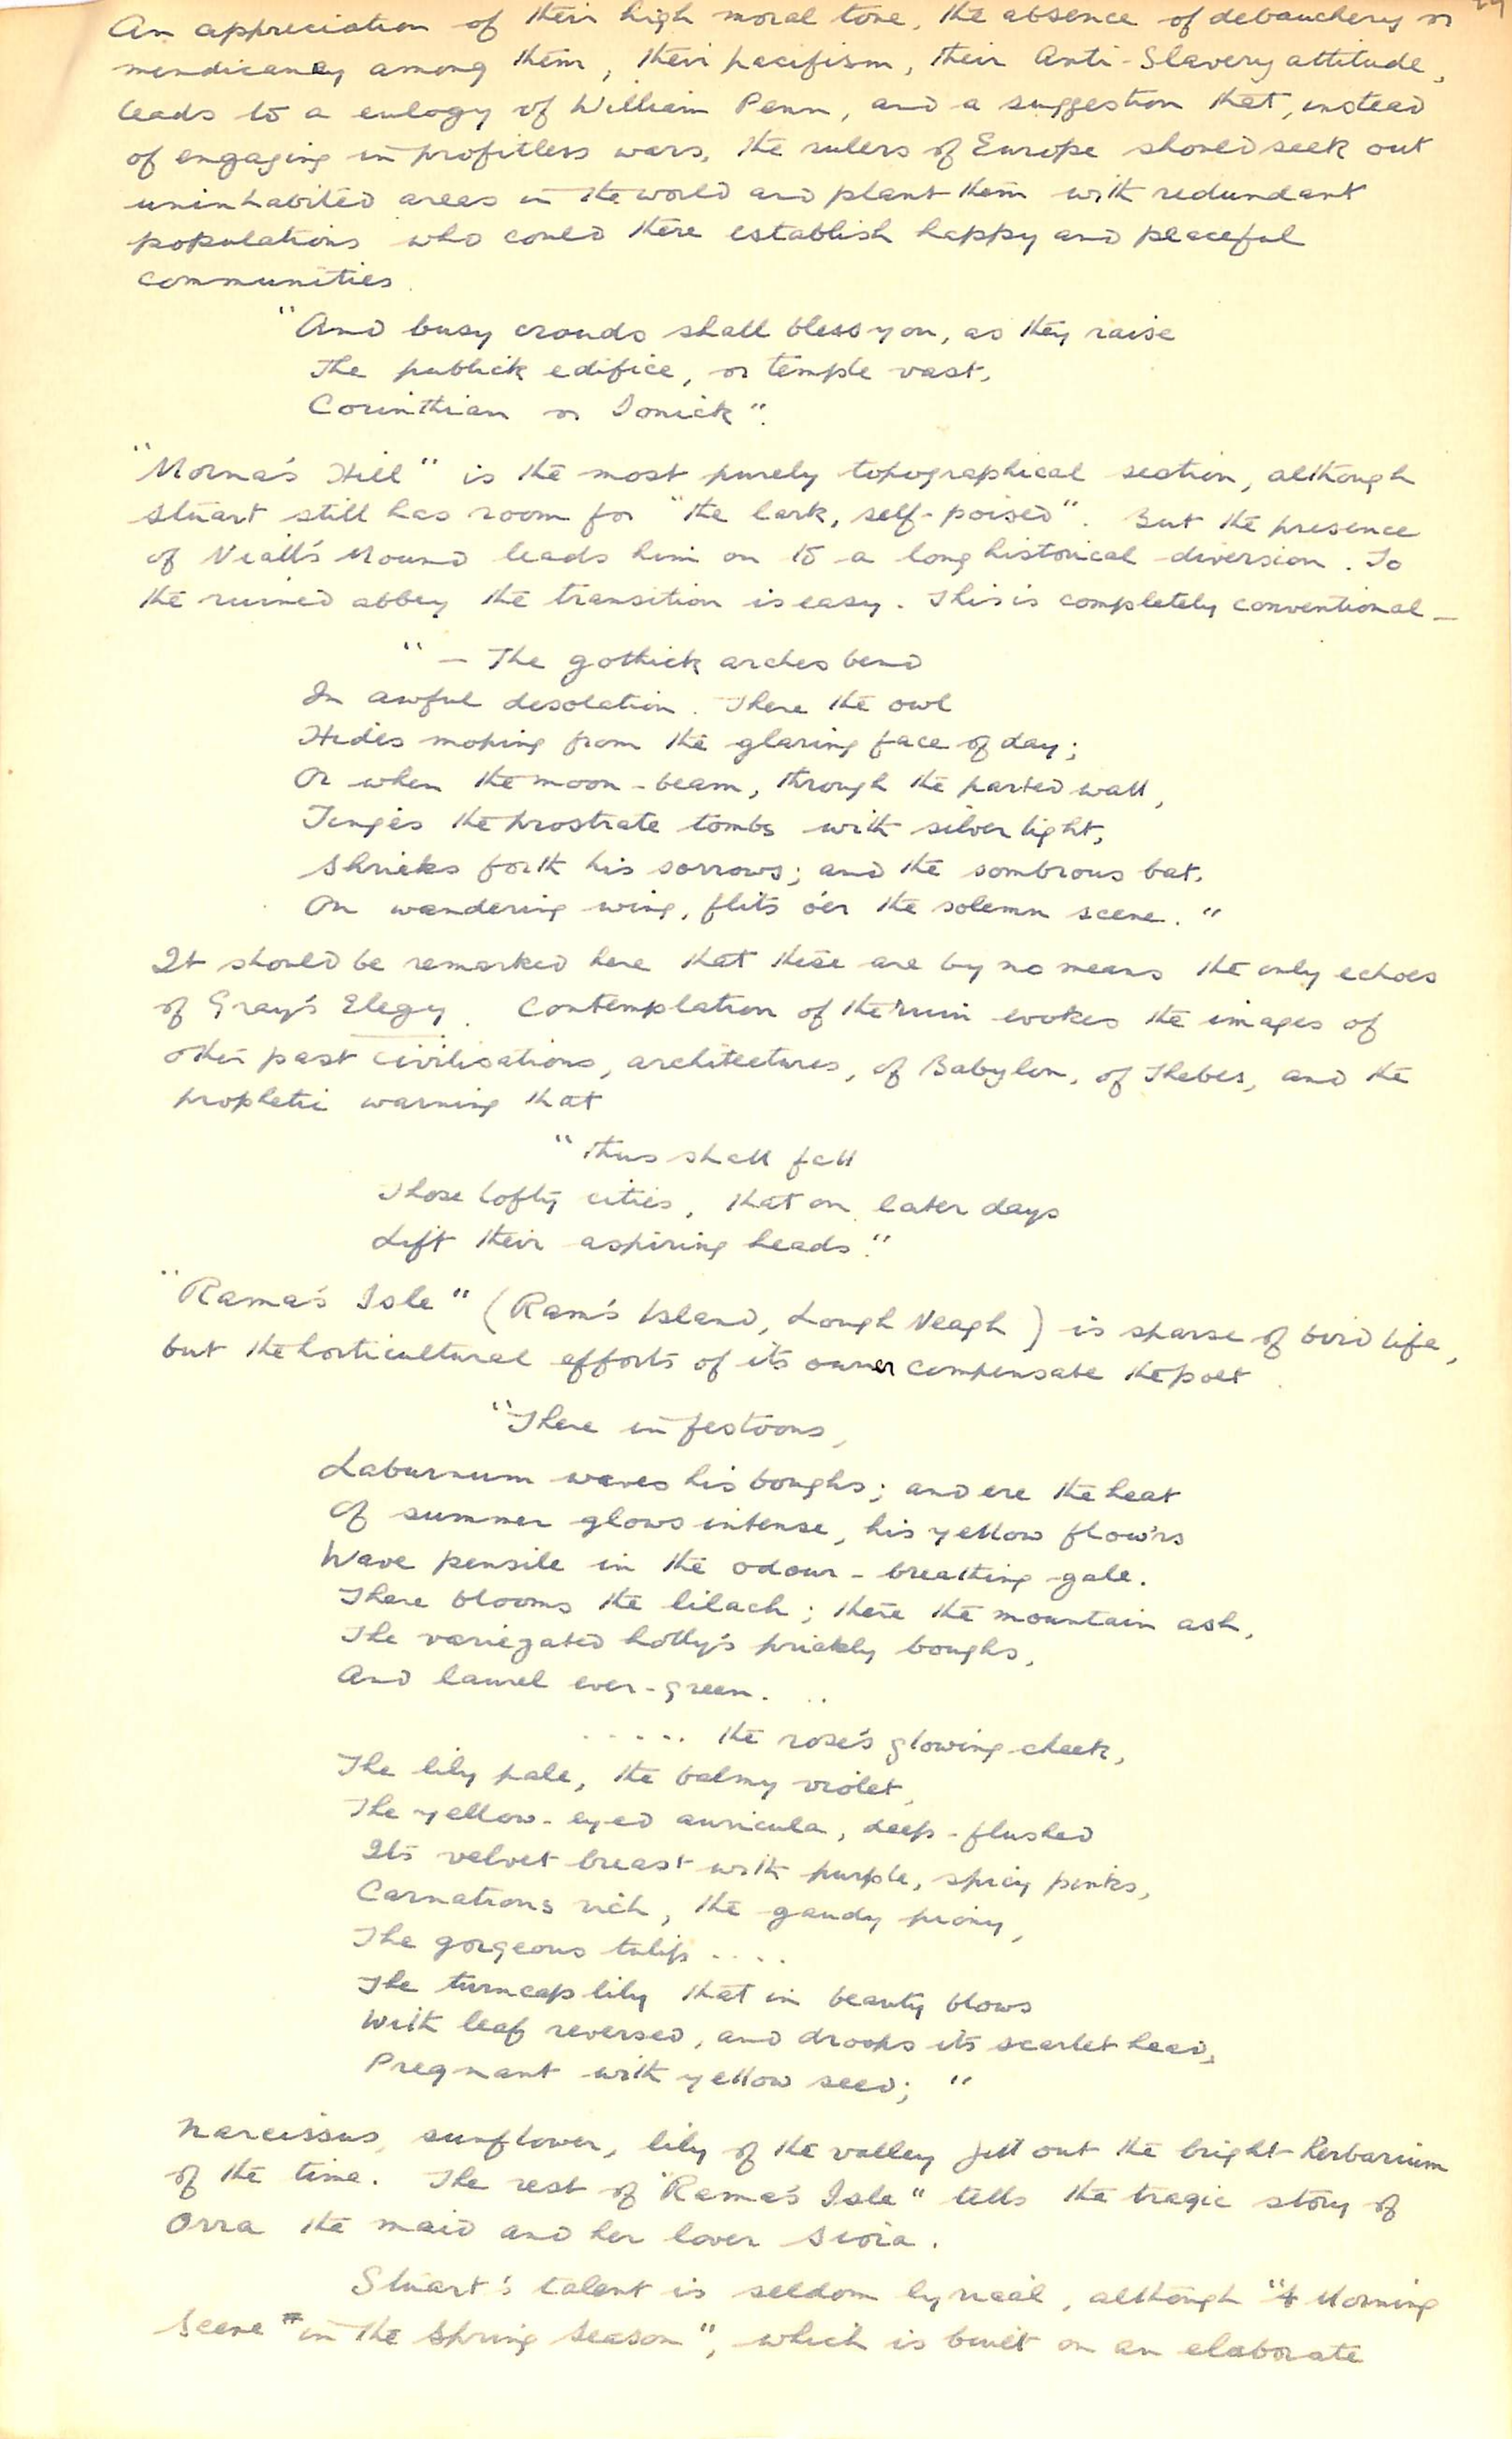 An appreciation of their high moral tone, the absence of debauchery or
mendicancy among them, their pacifism, their Anti-Slavery attitude,
leads to a eulogy of William Penn, and a suggestion that, instead
of engaging in profitless wars, the rulers of Europe should seek out
uninhabited areas in the world and plant them with redundant
populations who could there establish happy and peaceful
communities.
"And busy crowds shall bless you, as they raise
The publick edifice, or temple vast,
Corinthian or Ionick".
"Morna's Hill" is the most purely topographical section, although
Stuart still has room for "the lark, self-poised". But the presence
of Niall's Mound leads him on to a long historical diversion. To
the ruined abbey the transition is easy. This is completely conventional —
" — The gothick arches bend
In awful desolation. There the owl
Hides moping from the glaring face of day;
Or when the moon-beam, through the parted wall,
Tinges the prostrate tombs with silver light,
Shrieks forth his sorrows; and the sombrous bat,
On wandering wing, flits o'er the solemn scene."
It should be remarked here that these are by no means the only echoes
of Gray's Elegy. Contemplation of the ruin evokes the images of
other past civilisations, architectures, of Babylon, of Thebes, and the
prophetic warning that
"thus shall fall
Those lofty cities, that on later days
Lift their aspiring heads."
"Rama's Isle" (Ram's Island, Lough Neagh) is sparse of bird life,
but the horticultural efforts of its owner compensate the poet.
"There in festoons,
Laburnum waves his boughs; and ere the heat
Of summer glows intense, his yellow flow'rs
Wave pensile in the odour-breathing gale.
There blooms the lilach; there the mountain ash,
The variegated holly's prickly boughs,
And laurel ever-green. ..
..... the rose's glowing cheek,
The lily pale, the balmy violet,
The yellow-eyed auricula, deep-flushed
Its velvet breast with purple, spicy pinks,
Carnations rich, the gaudy piony,
The gorgeous tulip ....
The turncap lily that in beauty blows
With leaf reversed, and droops its scarlet head,
Pregnant with yellow seed; "
Narcissus, sunflower, lily of the valley fill out the bright herbarium
of the time. The rest of "Rama's Isle" tells the tragic story of
Orra the maid and her lover Sioia.
Stuart's talent is seldom lyrical, although "A Morning
Scene in the Spring Season", which is built on an elaborate